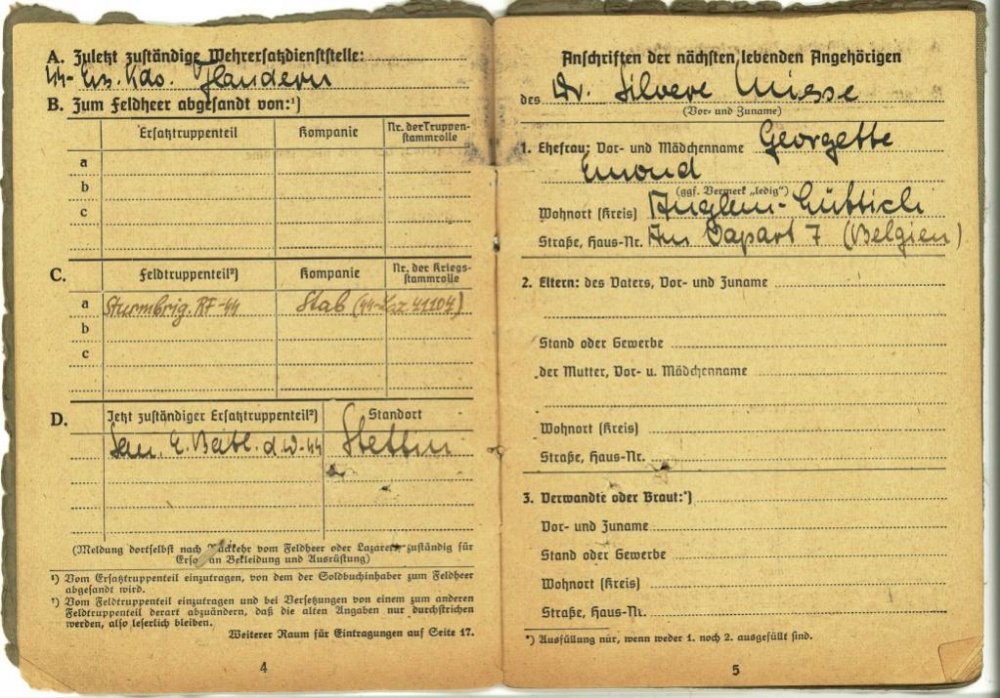 A. Zuletzt zuständige Wehrersatzdienststelle:
Flandern
B. Zum Feldheer abgesandt von:¹)
Ersatztruppenteil Kompanie Nr. der Truppen-
stammrolle
a
b
c
C. Feldtruppenteil²) Kompanie Nr. der Kriegs-
stammrolle
a Sturmbrig. RF-SS Stab (SS-Laz 41104)
b
c
D. Jetzt zuständiger Ersatztruppenteil²) Standort
San. E. Batl. d. W-SS Stettin
(Meldung dortselbst nach Rückkehr vom Feldheer oder Lazarett, zuständig für
Ersatz an Bekleidung und Ausrüstung)
¹) Vom Ersatztruppenteil einzutragen, von dem der Soldbuchinhaber zum Feldheer
abgesandt wird.
²) Vom Feldtruppenteil einzutragen und bei Versetzungen von einem zum anderen
Feldtruppenteil derart abzuändern, daß die alten Angaben nur durchstrichen
werden, also leserlich bleiben.
Weiterer Raum für Eintragungen auf Seite 17.
4
Anschriften der nächsten lebenden Angehörigen
des Dr. Silvere Miesse
(Vor- und Zuname)
1. Ehefrau: Vor- und Mädchenname Georgette
Emond
(ggf. Vermerk „ledig")
Wohnort (Kreis) Lüttich
Straße, Haus-Nr. 7 (Belgien)
2. Eltern: des Vaters, Vor- und Zuname
Stand oder Gewerbe
der Mutter, Vor- u. Mädchenname
Wohnort (Kreis)
Straße, Haus-Nr.
3. Verwandte oder Braut:*)
Vor- und Zuname
Stand oder Gewerbe
Wohnort (Kreis)
Straße, Haus-Nr.
*) Ausfüllung nur, wenn weder 1. noch 2. ausgefüllt sind.
5